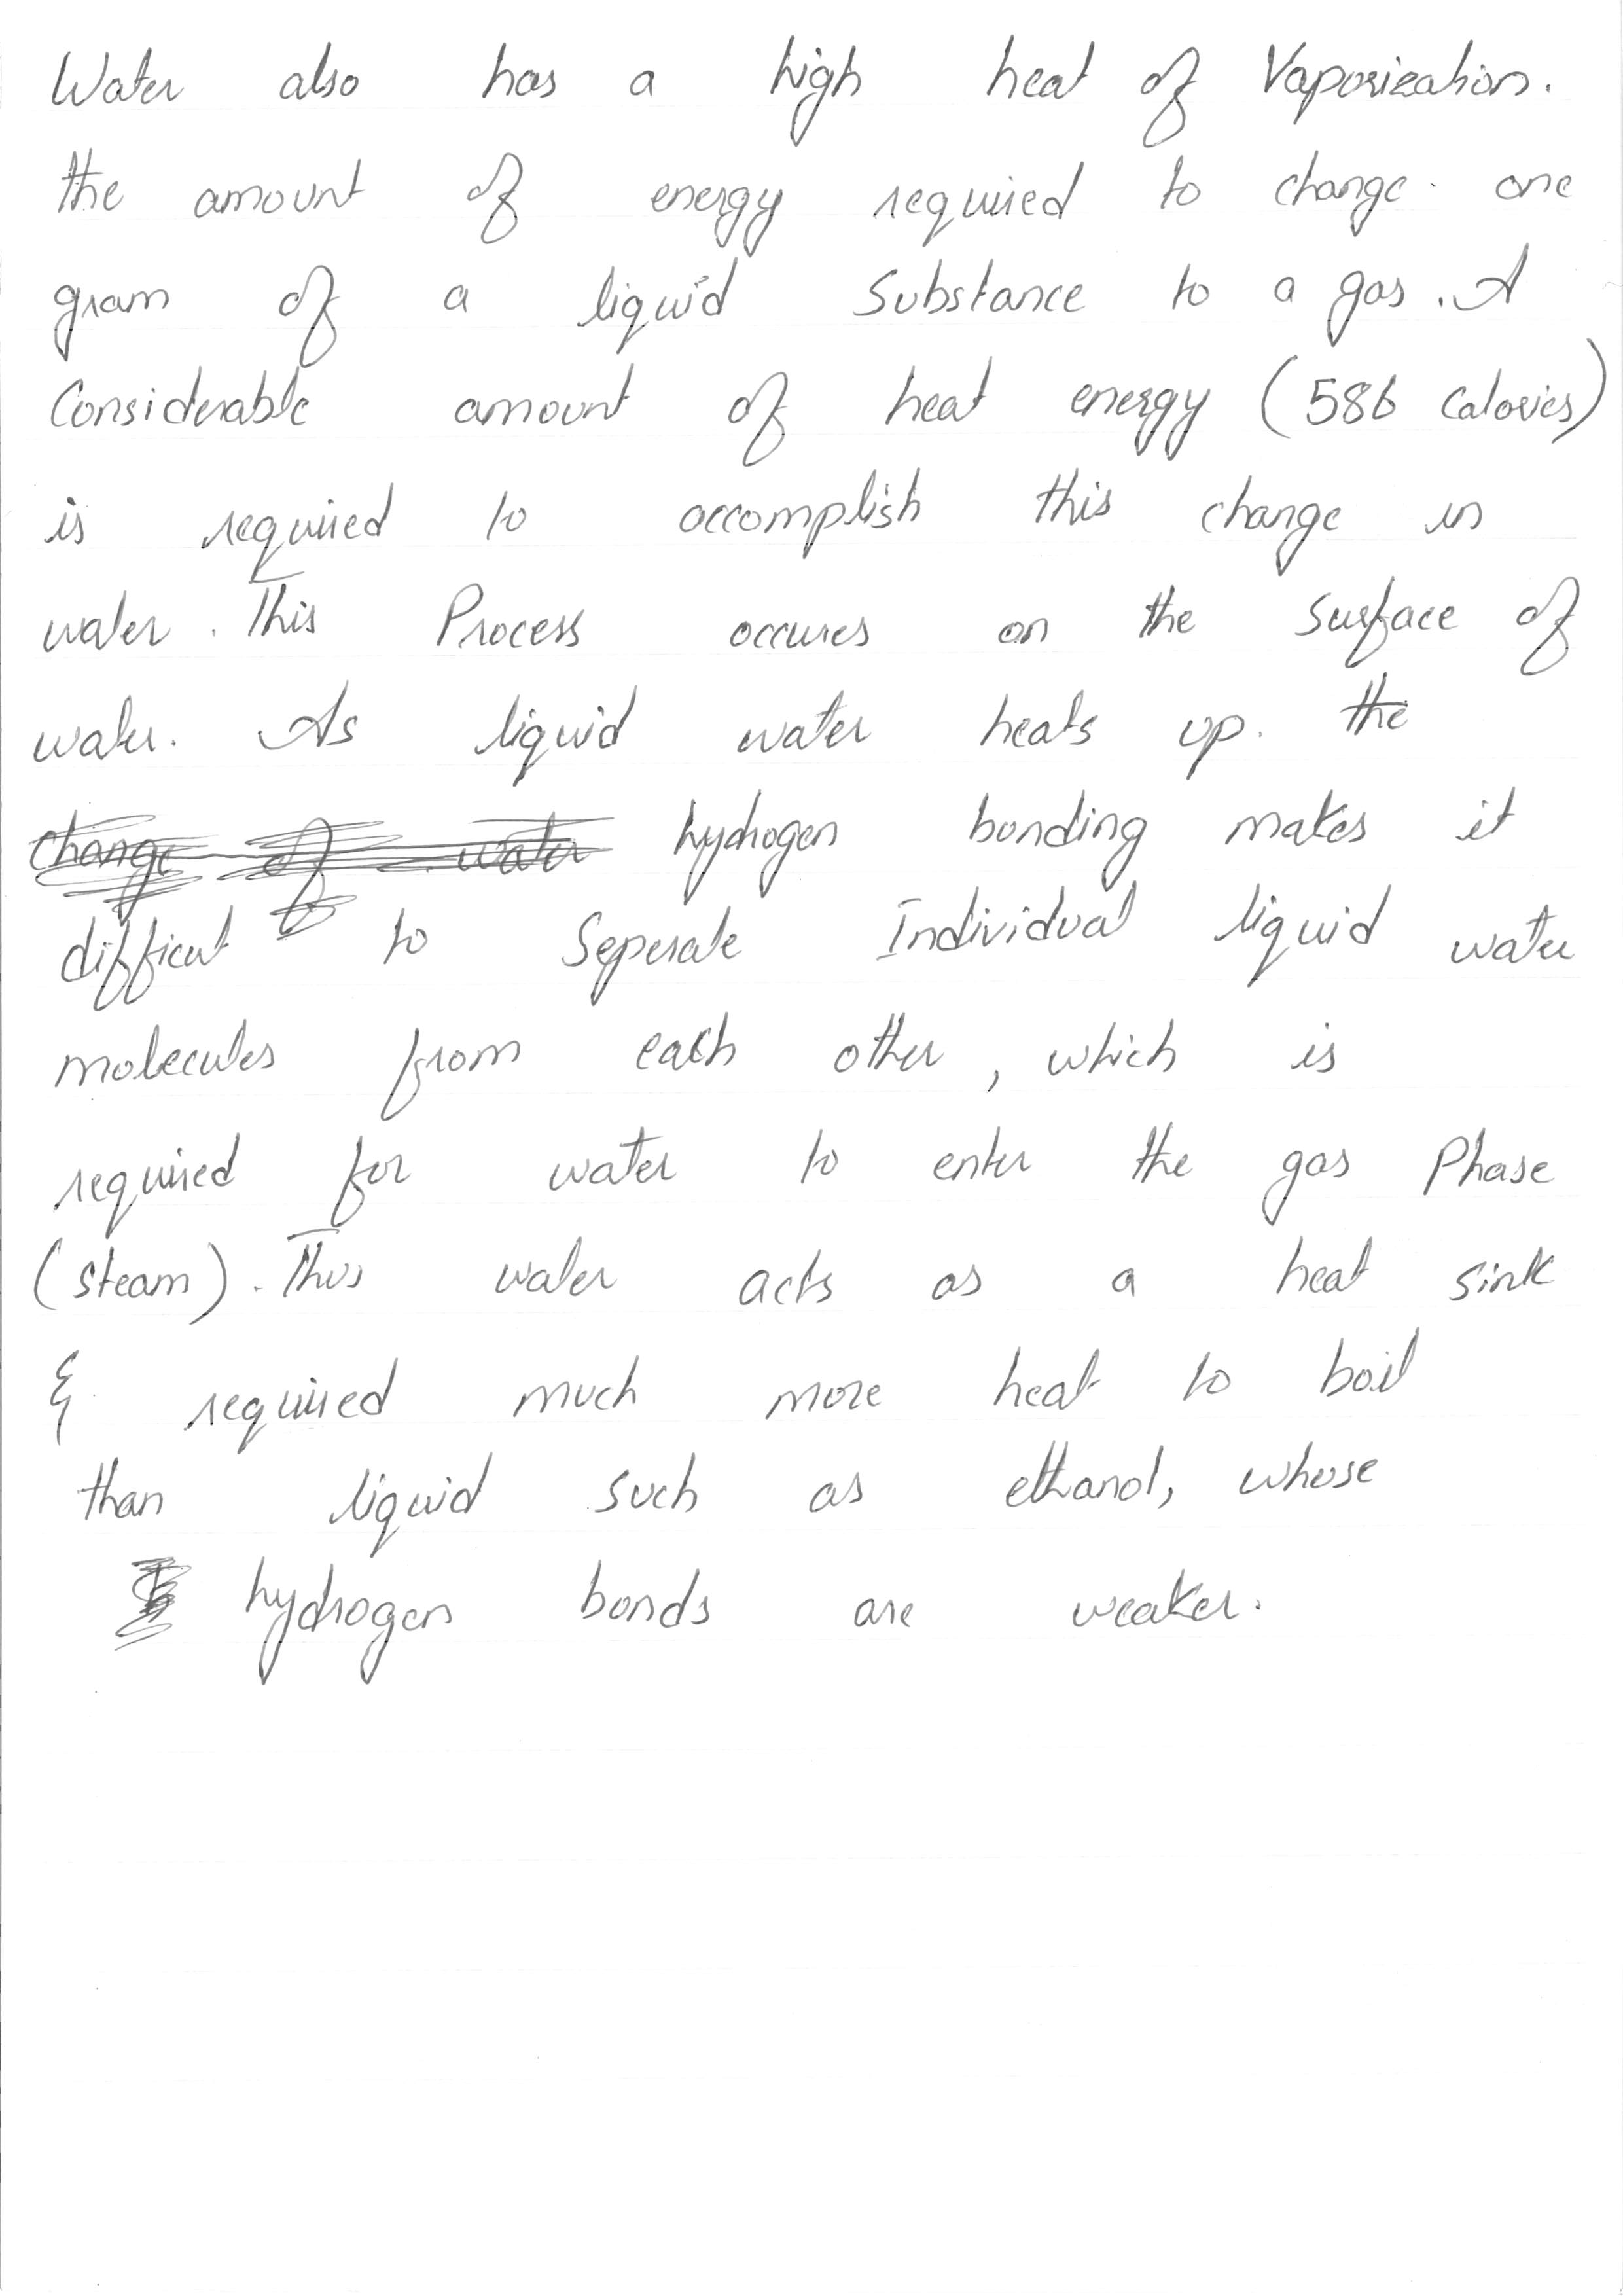 Water also has a high heat of Vaporization.
the amount of energy required to change one
gram of a liquid Substance to a gas. A
Considerable amount of heat energy (586 Calories)
is required to accomplish this change in
water. This Process occures on the Surface of
water. As liquid water heats up. the
change of water hydrogen bonding makes it
difficut to Seperate Individual liquid water
molecules from each other, which is
required for water to enter the gas Phase
(steam). Thus water acts as a heat sink
& required much more heat to boil
than liquid such as ethanol, whose
hydrogen bonds are weaker.